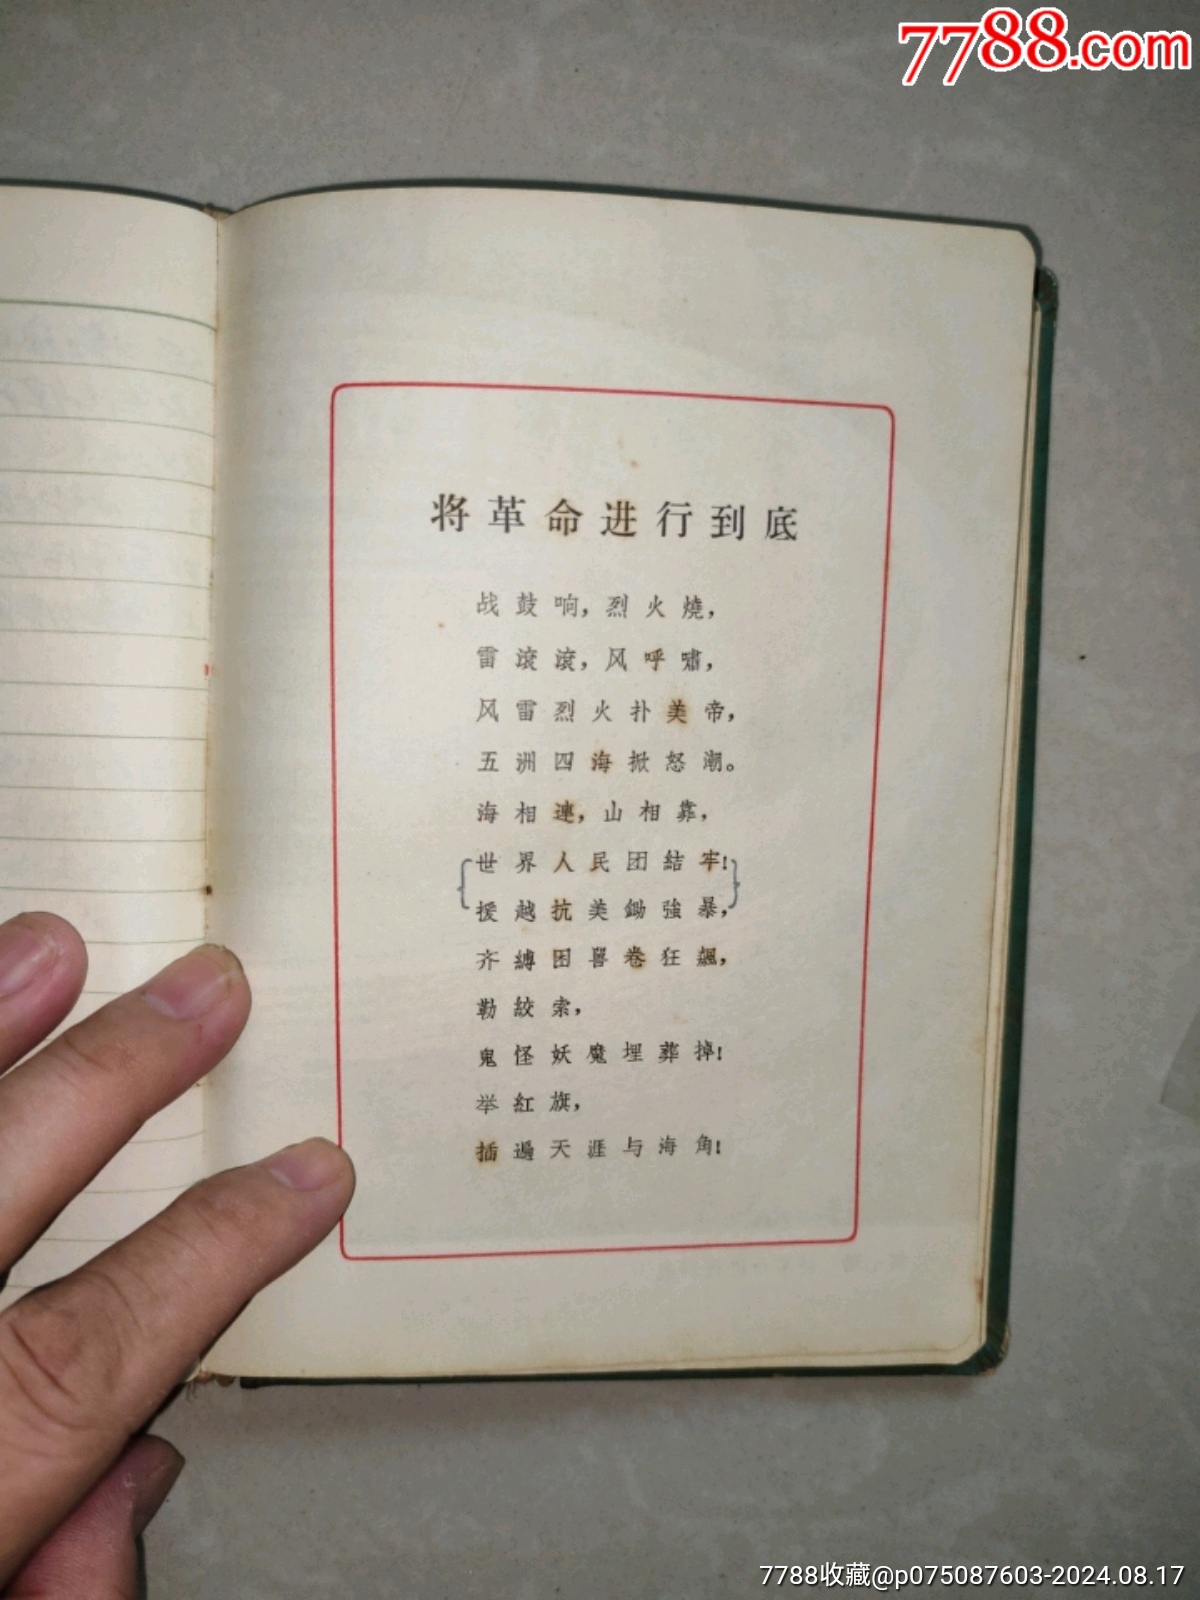 7788.com
将革命进行到底
战鼓响，烈火燒，
雷滚滚，风呼嘯，
风雷烈火扑美帝，
五洲四海掀怒潮。
海相連，山相靠，
世界人民团結牢！
援越抗美鋤強暴，
齐縛困兽卷狂飆，
勒絞索，
鬼怪妖魔埋葬掉！
举紅旗，
插遍天涯与海角！
7788收藏@p075087603-2024.08.17